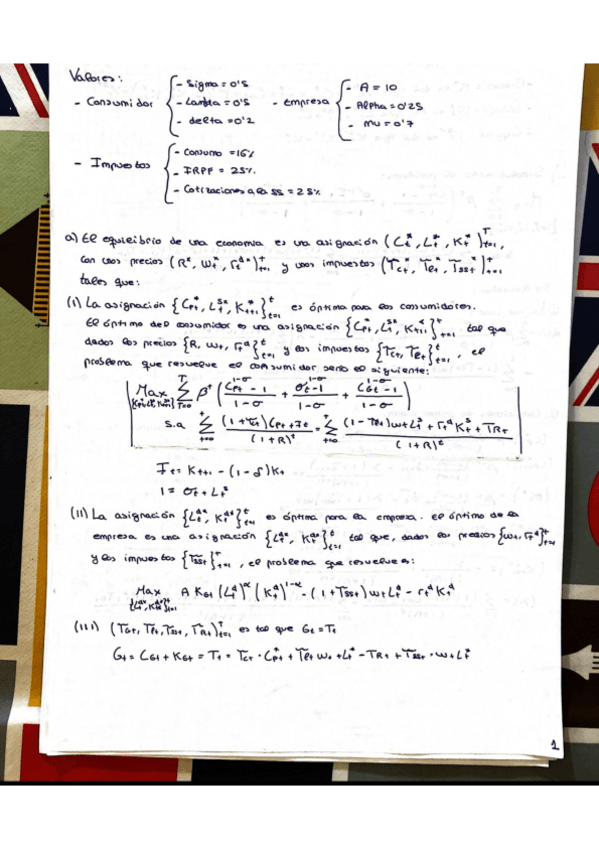 Valores:
- Consumidor
- Sigma = 0'5
- Lambda = 0'5
- delta = 0'2
- Empresa
- A = 10
- Alpha = 0'25
- mu = 0'7
- Impuestos
- Consumo = 16%
- IRPF = 25%
- Cotizaciones a la SS = 25%
a) El equilibrio de una economia es una asignación (Ct*, Lt*, Kt*)t=1^T,
con unos precios (R*, wt*, rt^d*)t=1^T y unos impuestos (Tct*, Tet*, Tsst*)t=1^T
tales que:
(i) La asignación {Cpt*, Lt^s*, Kt+1*}t=1^t es óptima para los consumidores.
El óptimo del consumidor es una asignación {Cpt*, Lt^s*, Kt+1*}t=1^t tal que
dados los precios {R, wt, rt^d}t=1^t y los impuestos {Tct, Tet}t=1^t, el
problema que resuelve el consumidor será el siguiente:
Max Σ β^t ( (Cpt^1-σ - 1)/(1-σ) + (σt^1-σ - 1)/(1-σ) + (CGt^1-σ - 1)/(1-σ) )
s.a Σt=0^t ((1+Tct)Cpt + It)/(1+R)^t = Σt=0^t ((1-Tet)wt Lt^s + rt^d Kt^s + TRt)/(1+R)^t
It = Kt+1 - (1-δ)Kt
1 = σt + Lt^s
(II) La asignación {Lt^d*, Kt^d*}t=1^t es óptima para la empresa. El óptimo de la
empresa es una asignación {Lt^d*, Kt^d*}t=1^t tal que, dados los precios {wt, rt^d}t=1^t
y los impuestos {Tsst}t=1^t, el problema que resuelve es:
Max {Lt^d*, Kt^d*}t=1^t A KGt (Lt^d)^α (Kt^d)^1-α - (1+Tsst) wt Lt^d - rt^d Kt^d
(III) (TGt, Tet, Tsst, TRt)t=1^t es tal que Gt = Tt
Gt = CGt + KGt = Tt = Tct · Cpt* + Tet wt Lt* - TRt + Tsst · wt Lt*
1